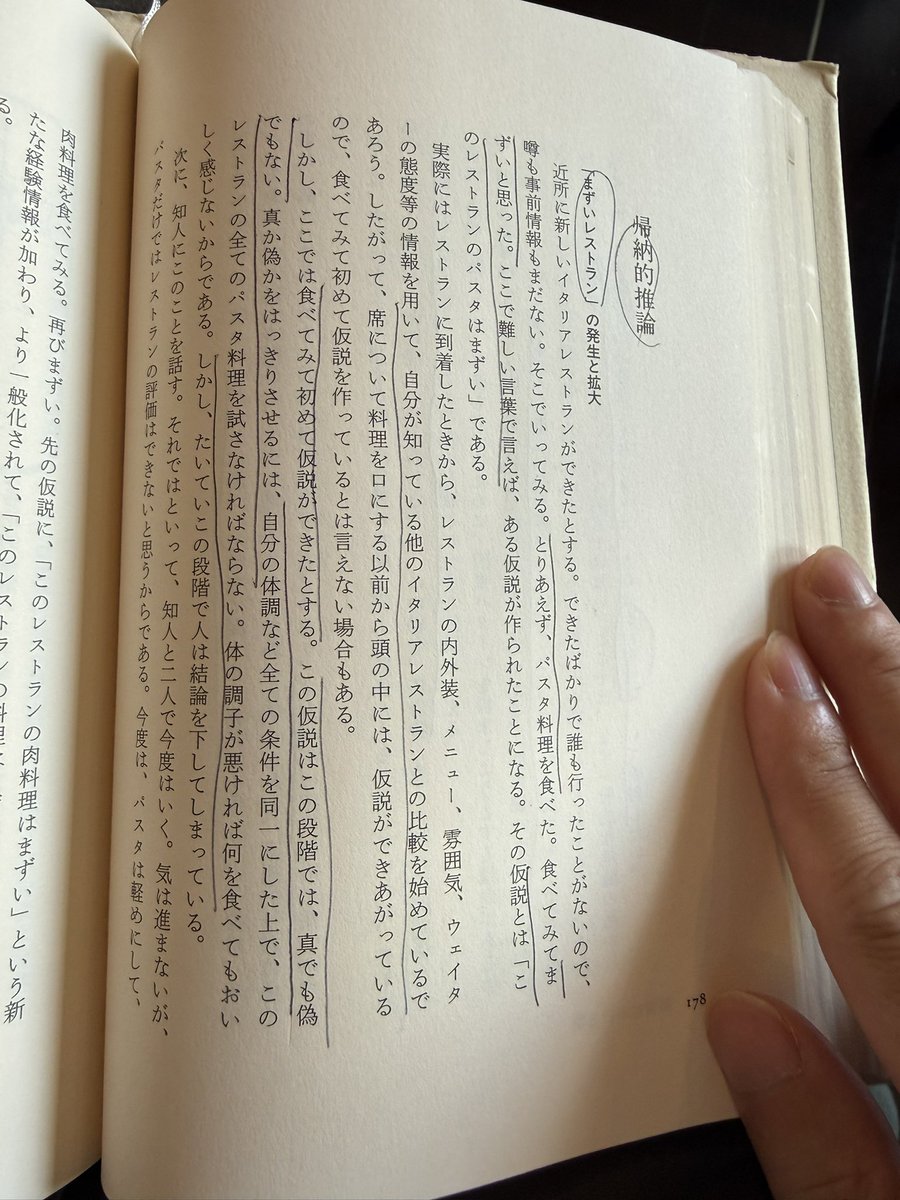 178
帰納的推論
「まずいレストラン」の発生と拡大
近所に新しいイタリアレストランができたとする。できたばかりで誰も行ったことがないので、
噂も事前情報もまだない。そこでいってみる。とりあえず、パスタ料理を食べた。食べてみてま
ずいと思った。ここで難しい言葉で言えば、ある仮説が作られたことになる。その仮説とは「こ
のレストランのパスタはまずい」である。
実際にはレストランに到着したときから、レストランの内外装、メニュー、雰囲気、ウェイタ
ーの態度等の情報を用いて、自分が知っている他のイタリアレストランとの比較を始めているで
あろう。したがって、席について料理を口にする以前から頭の中には、仮説ができあがっている
ので、食べてみて初めて仮説を作っているとは言えない場合もある。
しかし、ここでは食べてみて初めて仮説ができたとする。この仮説はこの段階では、真でも偽
でもない。真か偽かをはっきりさせるには、自分の体調など全ての条件を同一にした上で、この
レストランの全てのパスタ料理を試さなければならない。体の調子が悪ければ何を食べてもおい
しく感じないからである。しかし、たいていこの段階で人は結論を下してしまっている。
次に、知人にこのことを話す。それではといって、知人と二人で今度はいく。気は進まないが、
パスタだけではレストランの評価はできないと思うからである。今度は、パスタは軽めにして、
肉料理を食べてみる。再びまずい。先の仮説に、「このレストランの肉料理はまずい」という新
たな経験情報が加わり、より一般化されて、「このレストランの料理は
る。